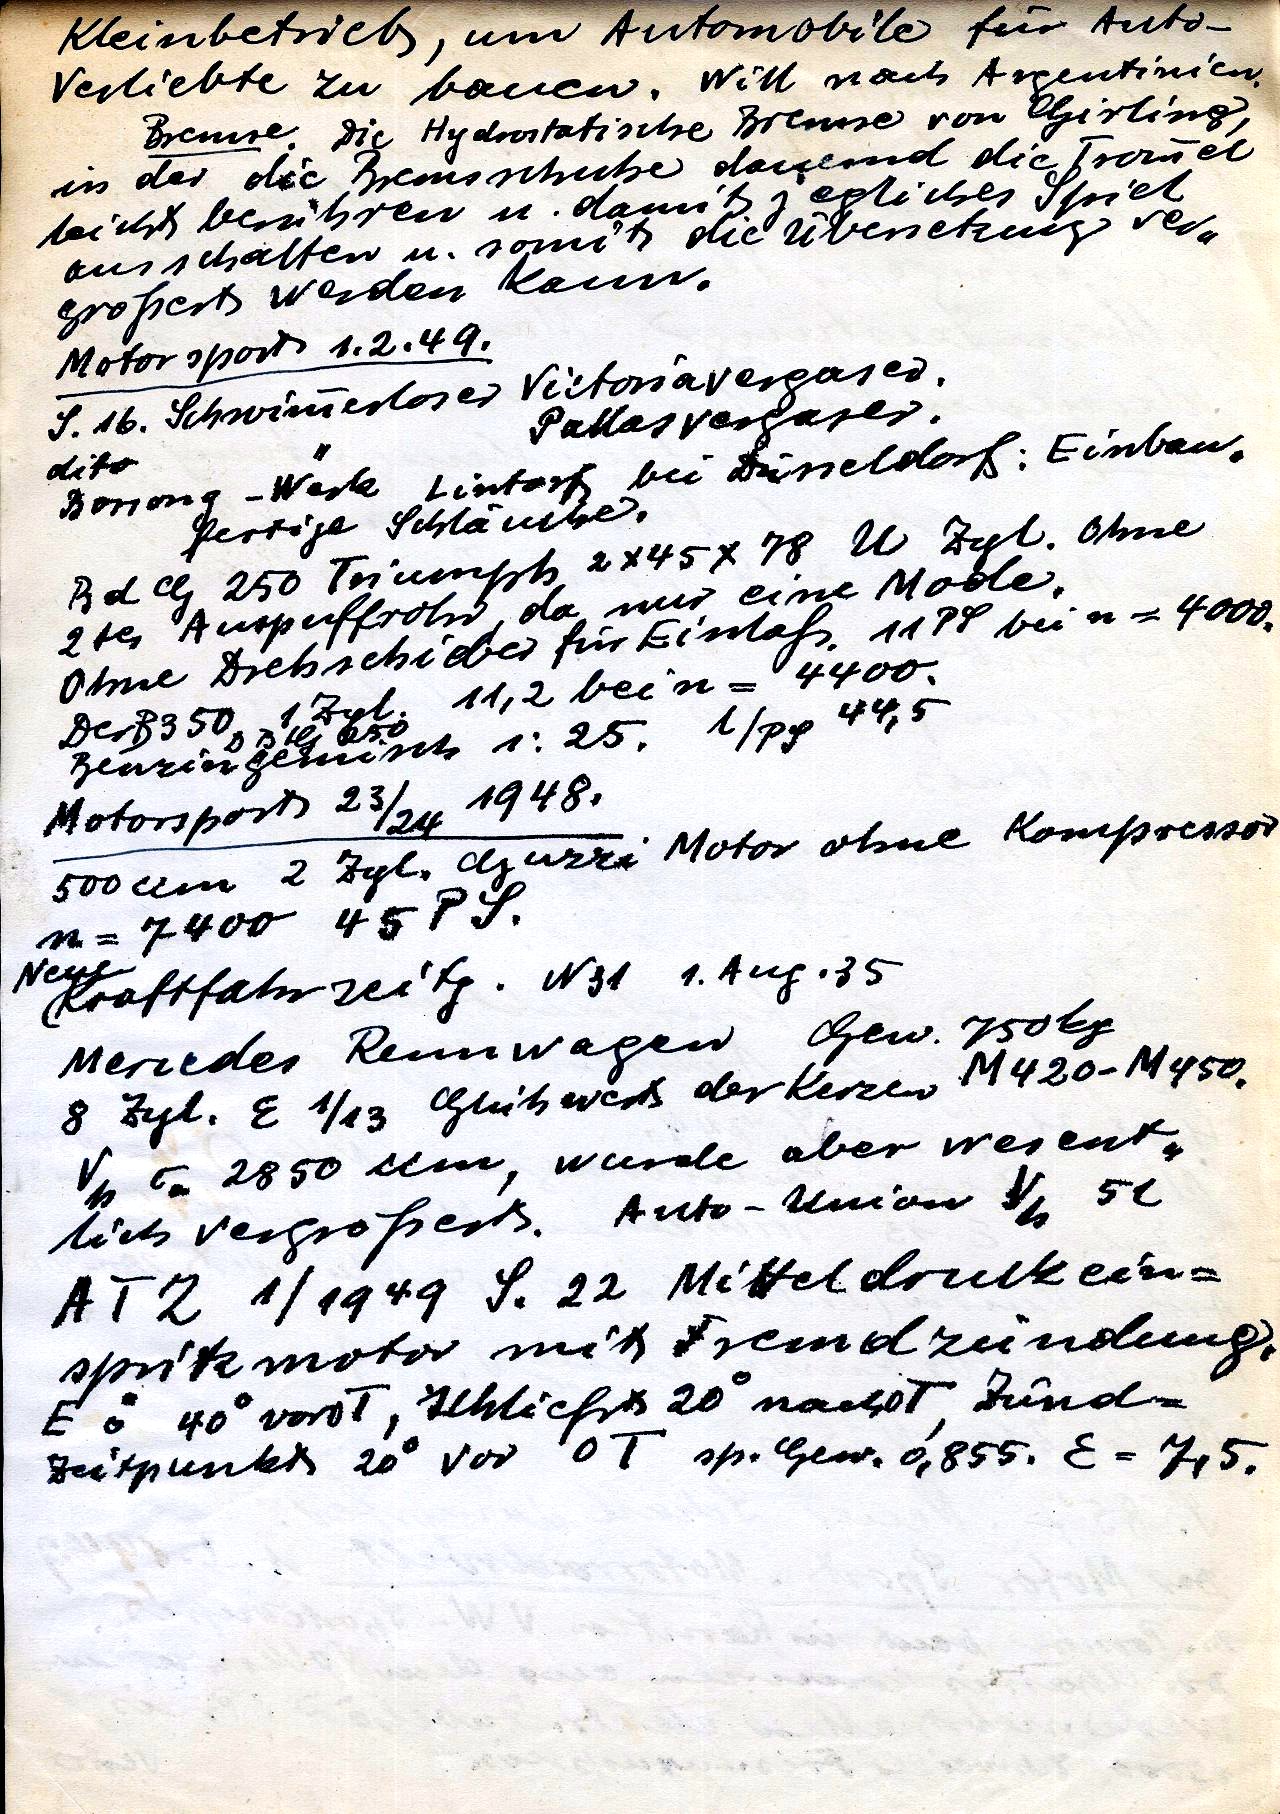 Kleinbetrieb, um Automobile für Auto-
Verliebte zu bauen. Will nach Argentinien.
Bremse. Die Hydrostatische Bremse von Girling,
in der die Bremsschuhe dauernd die Trom̄el
leicht berühren u. damit jegliches Spiel
ausschalten u. somit die Übersetzung ver„
größert werden kann.
Motorsport 1.2.49.
S. 16. Schwim̄erloser Victoriavergaser.
dito " Pallasvergaser.
-Werk Lintorf bei Düsseldorf: Einbau„
fertige Schläuche.
BdG 250 Triumph 2x45x78 U Zyl. Ohne
2tes Auspuffrohr, da nur eine Mode.
Ohne Drehschieber für Einlaß. 11 PS bei n = 4000.
Der B350, 1 Zyl. 11,2 bei n = 4400.
Benzingemisch 1:25. l/PS 44,5
BDG 250
Motorsport 23/24 1948.
500 ccm 2 Zyl. Guzzi Motor ohne Kompressor
n = 7400 45 PS.
Neue
Kraftfahrzeitg. N31 1. Aug. 35
Mercedes Rennwagen Gew. 750 kg
8 Zyl. ε 1/13 Glühwert der Kerzen M420-M450.
Vh ca 2850 ccm, wurde aber wesent„
lich vergrößert. Auto-Union Vh 5l
ATZ 1/1949 S. 22 Mitteldruckein=
spritzmotor mit Fremdzündung.
E ö 40° vor OT, schließt 20° nach OT, Zünd=
Zeitpunkt 20° vor OT sp. Gew. 0,855. ε = 7,5.